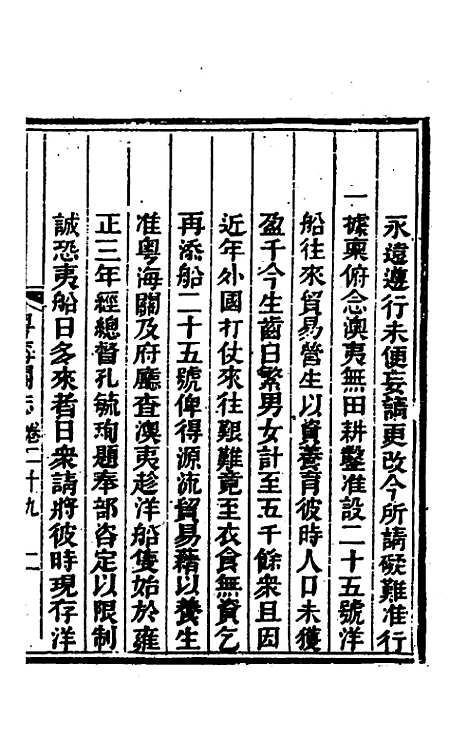 永遠遵行未便妄請更改今所請礙難准行
一據稟俯念澳夷無田耕鑿准設二十五號洋
船往來貿易營生以資養育彼時人口未獲
盈千今生齒日繁男女計至五千餘衆且因
近年外國打仗來往艱難竟至衣食無資乞
再添船二十五號俾得源流貿易藉以養生
准粤海關及府廳查澳夷趁洋船隻始於雍
正三年經總督孔毓珣題奉部咨定以限制
誠恐夷船日多來者日衆請將彼時現存洋
粤海關志卷二十九 二